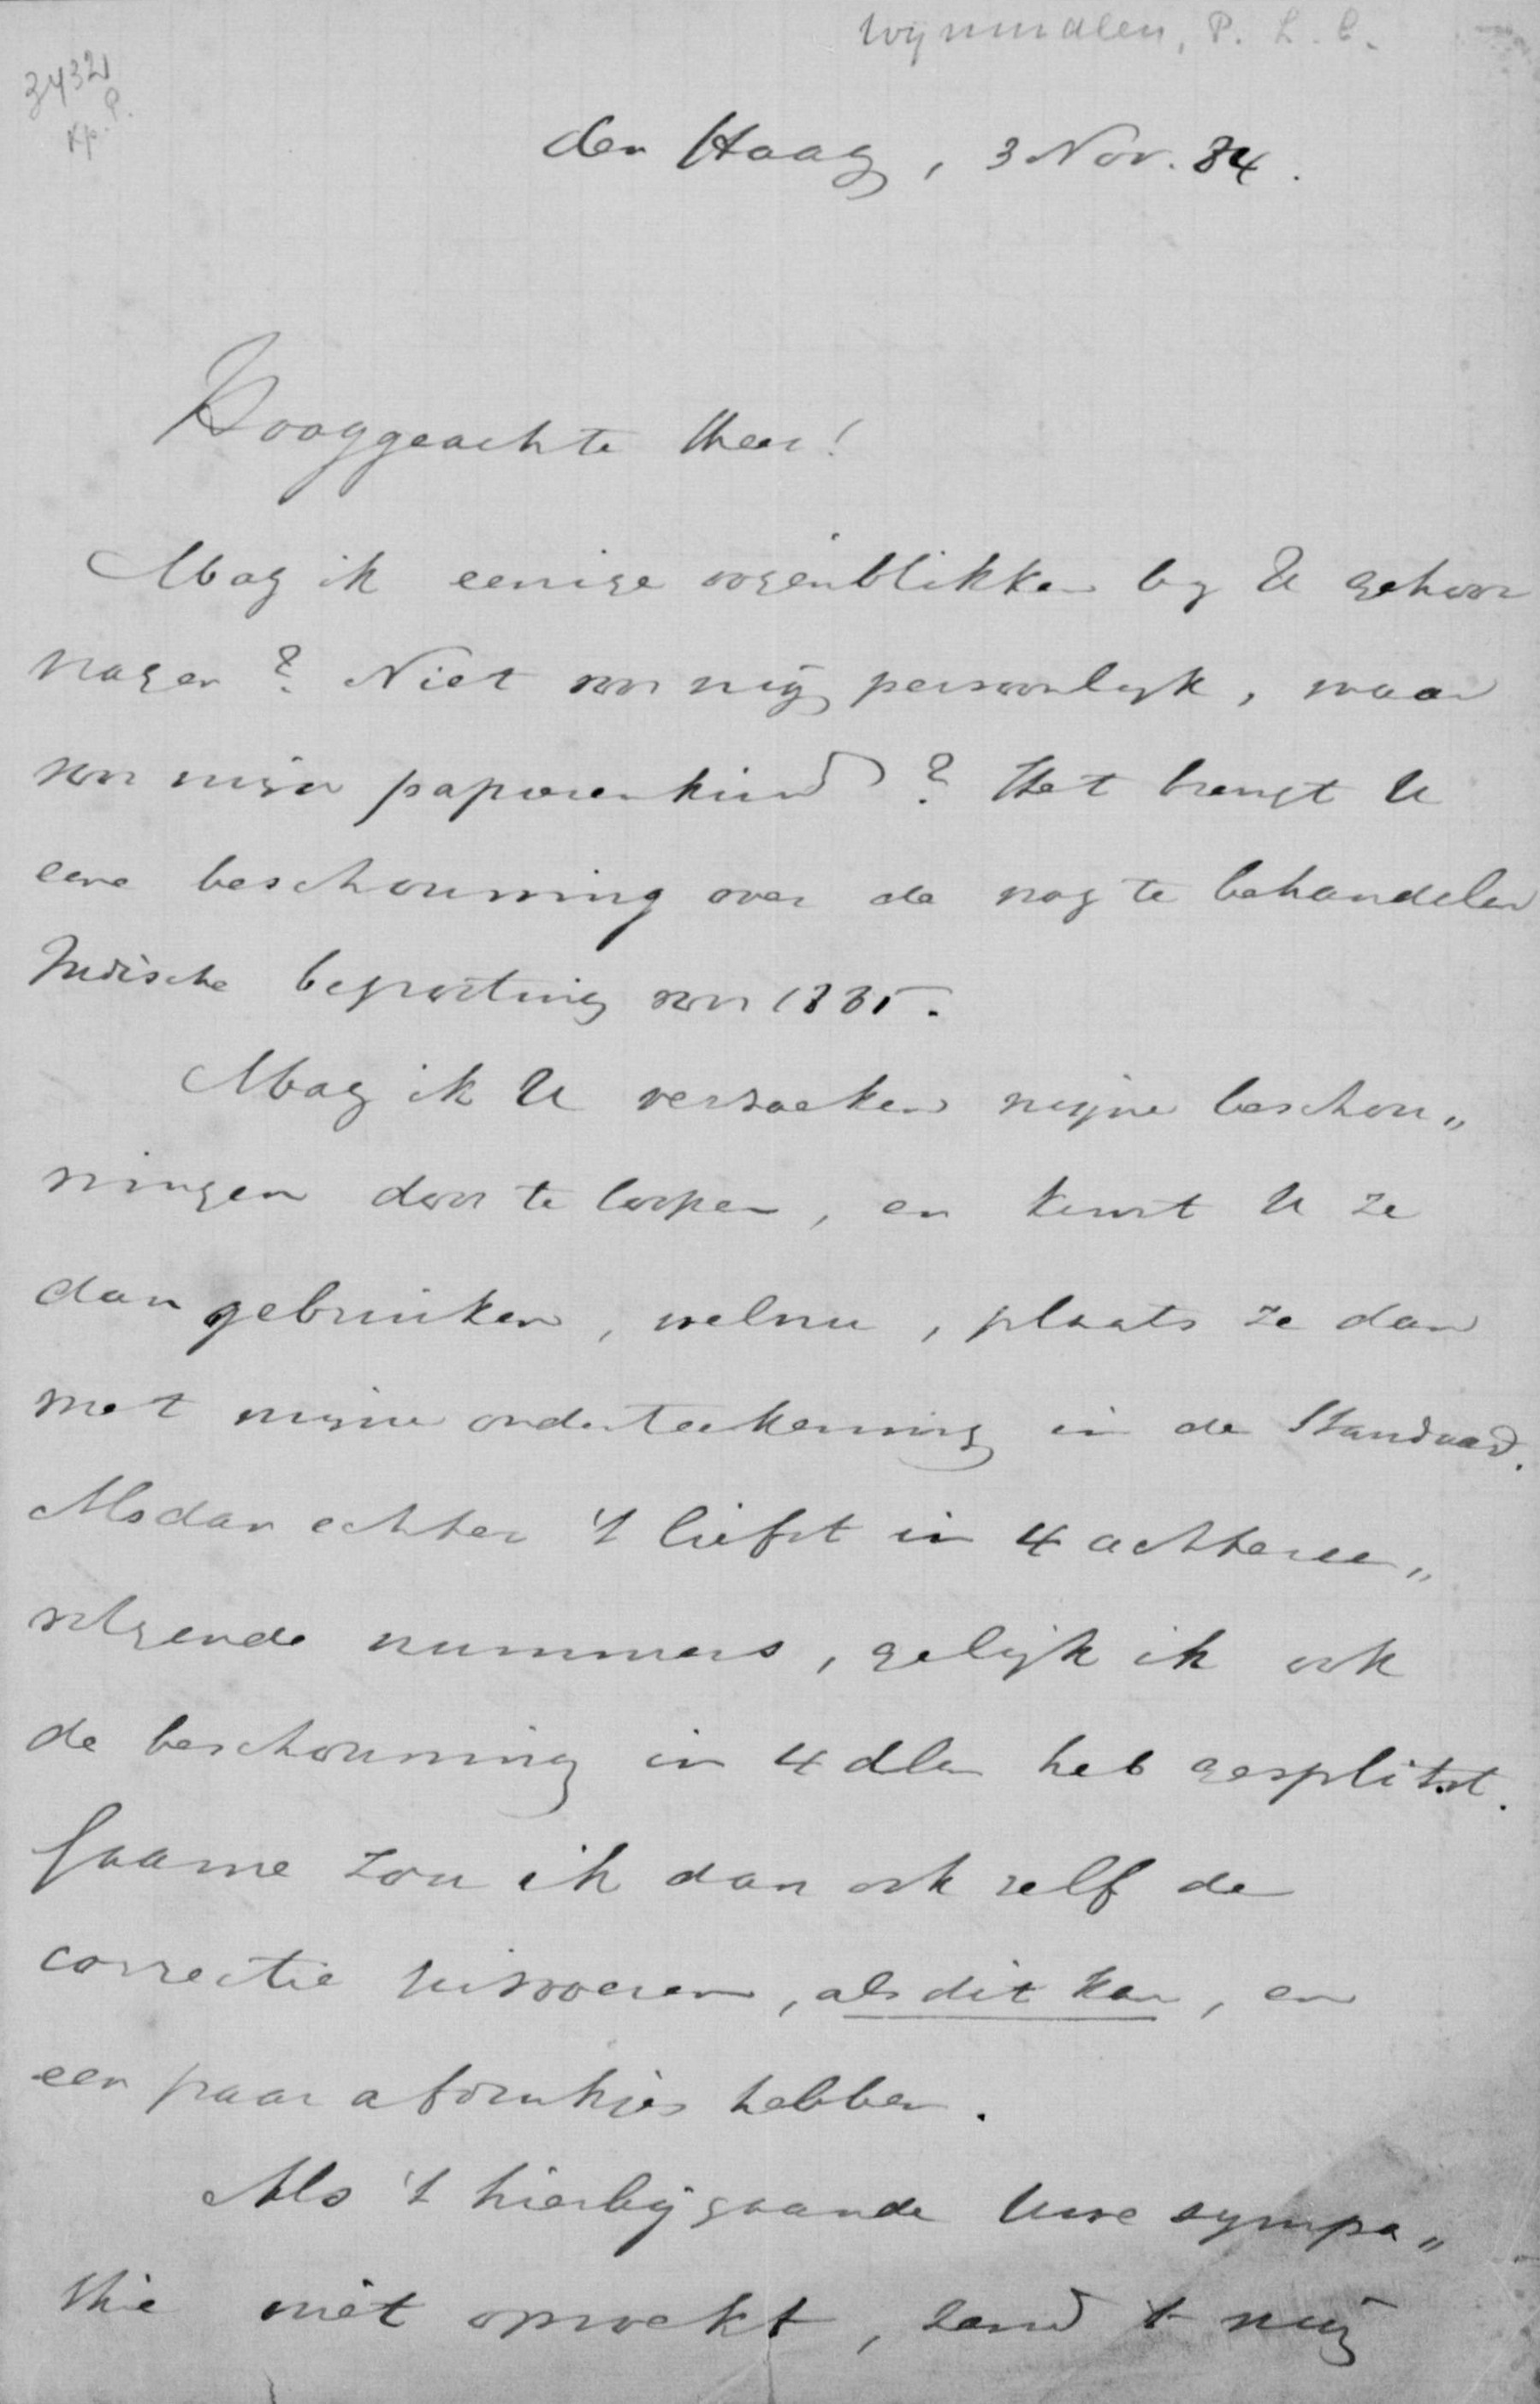 Wijnmalen, P. L. C.
3432
Kp. P.
den Haag, 3 Nov. 84.
Hooggeachte Heer!
Mag ik eenige oogenblikken by U gehoor
vragen? Niet voor mij persoonlyk, maar
voor mijn papierenkind? Het brengt U
eene beschouwing over de nog te behandelen
Indische begrooting voor 1885.
Mag ik U verzoeken mijne beschou„
wingen door te loopen, en kunt U ze
dan gebruiken, welnu, plaats ze dan
met mijne onderteekening in de Standaard.
Alsdan echter 't liefst in 4 achtereen„
volgende nummers, gelijk ik ook
de beschouwing in 4 dln heb gesplitst.
Gaarne zou ik dan ook zelf de
correctie uitvoeren, als dit kan, en
een paar afdrukjes hebben.
Als 't hierbijgaande Uwe sympa„
thie niet opwekt, zend 't mij